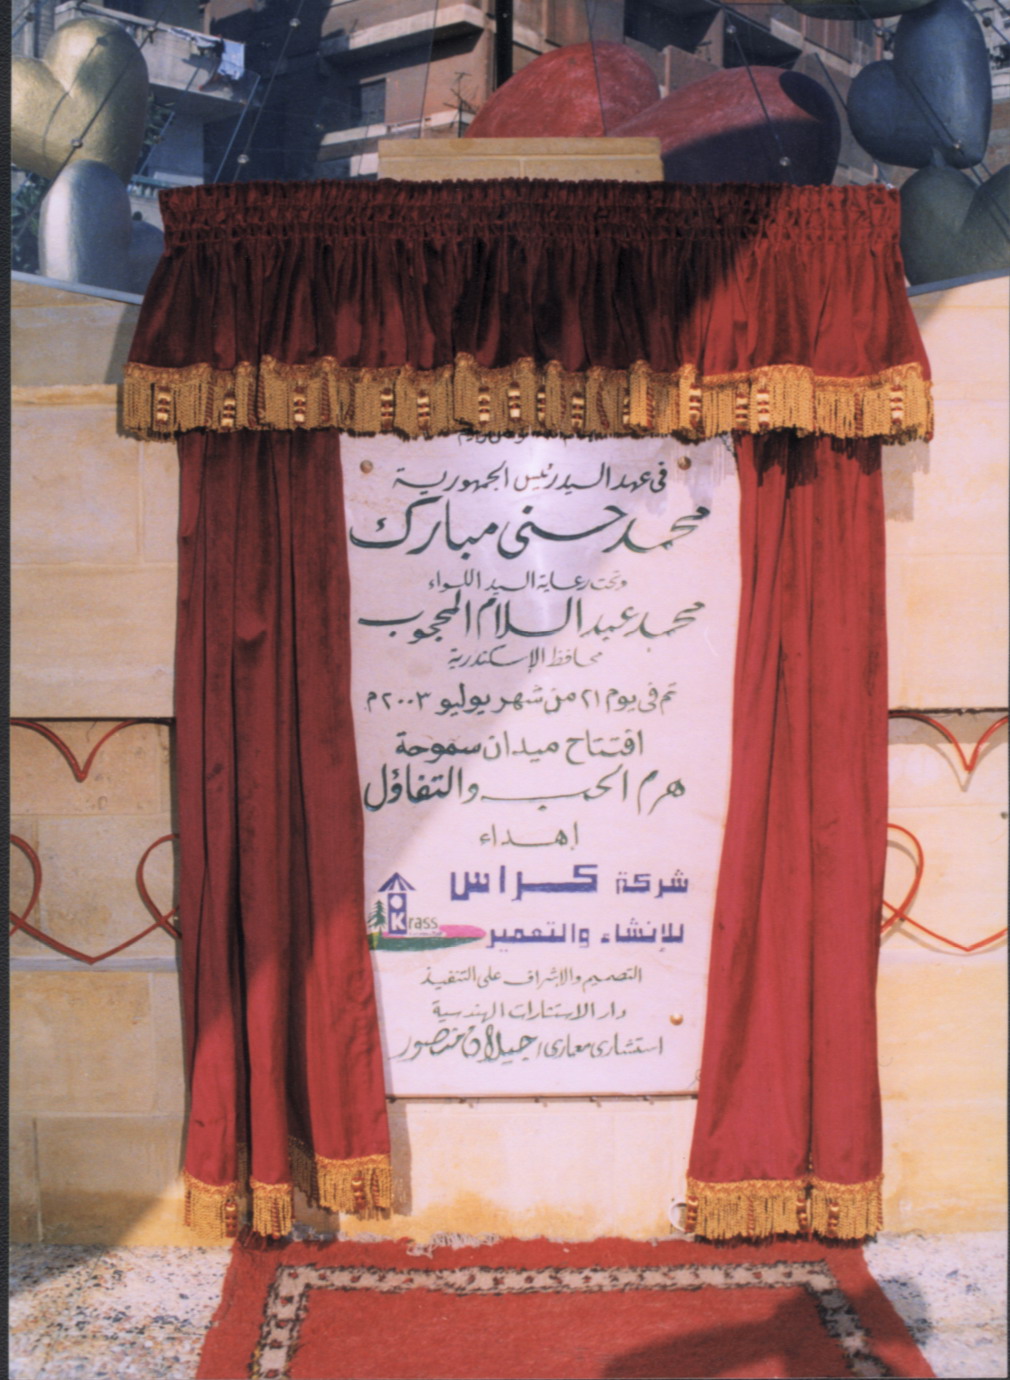 فى عهد السيد رئيس الجمهورية
محمد حسنى مبارك
وتحت رعاية السيد اللواء
محمد عبد السلام المحجوب
محافظ الإسكندرية
تم فى يوم ٢١ من شهر يوليو ٢٠٠٣م
افتتاح ميدان سموحة
هرم الحب والتفاؤل
إهداء
شركة كراس
للإنشاء والتعمير
Krass
التصميم والإشراف على التنفيذ
دار الاستشارات الهندسية
استشارى معمارى / جيلان منصور